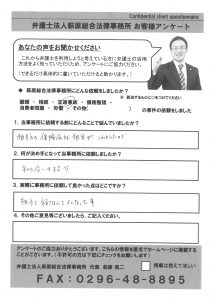 Confidential client questionnaire
弁護士法人萩原総合法律事務所 お客様アンケート
あなたの声をお聞かせください
これから弁護士を利用しようと考えている方に弁護士の活用
方法をよく知っていただくため、アンケートにご協力ください。
(できるだけ具体的に書いていただけると助かります。)
◆ 萩原総合法律事務所にどんな依頼をしましたか?
離婚 ・ 相続 ・ 交通事故 ・ 債務整理 ・
消費者問題 ・ 労働 ・ その他( )
の事件を依頼をした
1. 当事務所に依頼する前にどんなことで悩んでいましたか?
2. 何が決め手となって当事務所に依頼しましたか?
3. 実際に事務所に依頼して良かった点はどこですか?
4. その他ご意見等ございましたら、ご記入ください。
アンケートのご協力ありがとうございます。こちらの情報を匿名でホームページに掲載する
ことがございます。(不許可の方は下記にチェックをお願いします)
弁護士法人萩原総合法律事務所 代表 萩原 慎二
掲載は控えてほしい
FAX:0296-48-8895